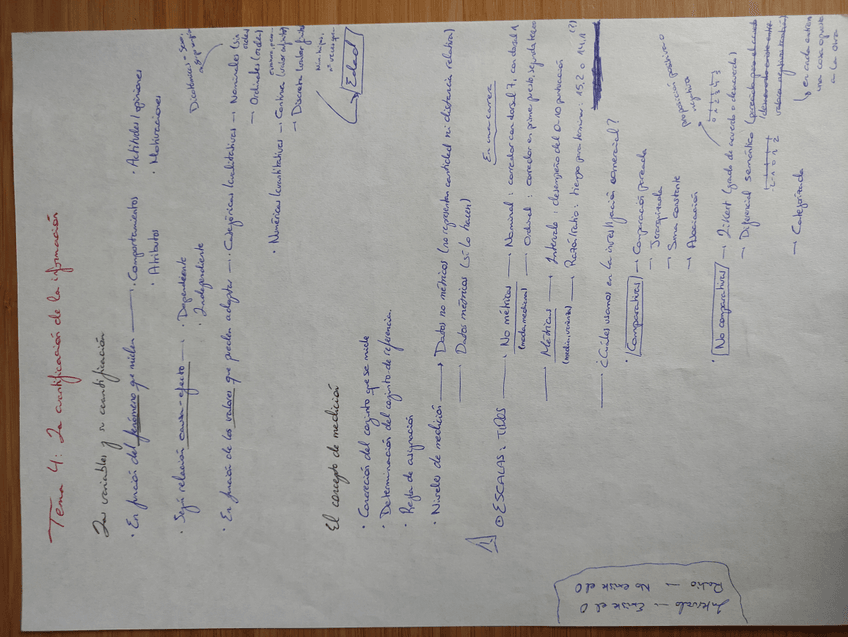 Tema 4: La cuantificación de la información
Las variables y su cuantificación
· En función del fenómeno que miden — · Comportamientos · Actitudes / opiniones
· Atributos · Motivaciones
· Según relación causa-efecto — · Dependiente
· Independiente
· En función de los valores que pueden adoptar — · Categóricas / cualitativas — Nominales (sin orden)
→ Ordinales (orden)
· Numéricas / cuantitativas → Continua
→ Discreta
Edad
El concepto de medición
· Concreción del conjunto que se mide
· Determinación del conjunto de referencia
· Regla de asignación
· Niveles de medición → Datos no métricos (no representan cantidad ni distancia relativa)
→ Datos métricos (sí lo hacen)
En una carrera
ESCALAS: TIPOS
— No métricas — Nominal: corredor con dorsal 7; con dorsal 1
— Ordinal: corredor en primer puesto, segundo, tercero
— Métricas — Intervalo: desempeño del 0-10 puntuación
— Razón/Ratio: tiempo para terminar: 15,2 o 14,1
— ¿Cuáles usamos en la investigación comercial?
· Comparativas → Comparación pareada
→ Jerarquizada
→ Suma constante
→ Asociación
proposición positiva o negativa
· No comparativas → Likert (grado de acuerdo o desacuerdo)
0 1 2 3 4 5
→ Diferencial semántico
-2 -1 0 1 2
en cada extremo
una cosa opuesta
a la otra
→ Categorizada
Intervalo — Existe el 0
Ratio — No existe el 0